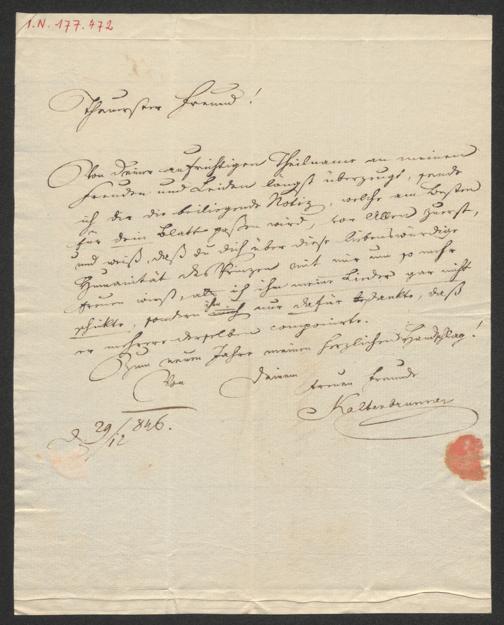 I.N. 177.472
Theuerster Freund!
Von Deiner aufrichtigen Theilname an meinen
Freuden und Leiden längst überzeugt, sende
ich dir die beiliegende Notiz, welche am Besten
für dein Blatt passen wird, vor Allen zuerst,
und weiß, daß du dich über diese liebenswürdige
Humanität des Prinzen mit mir um so mehr
freuen wirst, als ich ihm meine Lieder gar nicht
schikte, sondern ihm nur dafür dankte, daß
er mehrere derselben componirte.
Zum neuen Jahre meinen herzlichen Handschlag!
Von Deinem
treuen Freunde
Kaltenbrunner
d. 29/12 846.